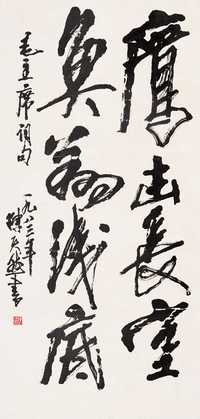 鹰击長空
魚翔浅底
毛主席词句
一九八三年
陈天然書